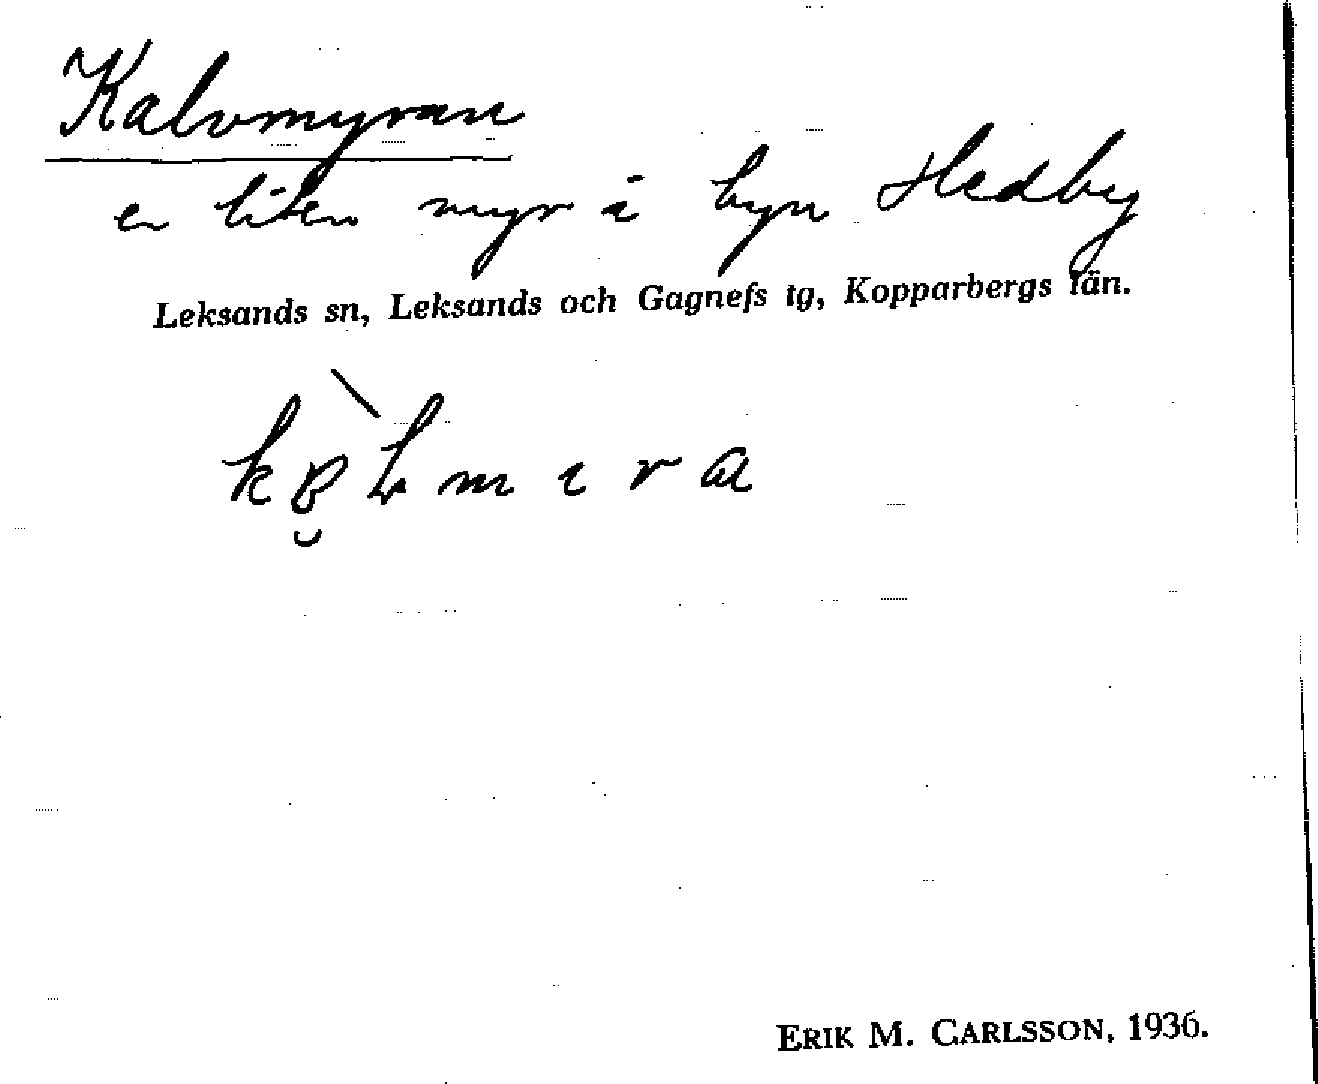 Kalvmyran
en liten myr i byn Hedby
Leksands sn, Leksands och Gagnefs tg, Kopparbergs län.
ERIK M. CARLSSON, 1936.